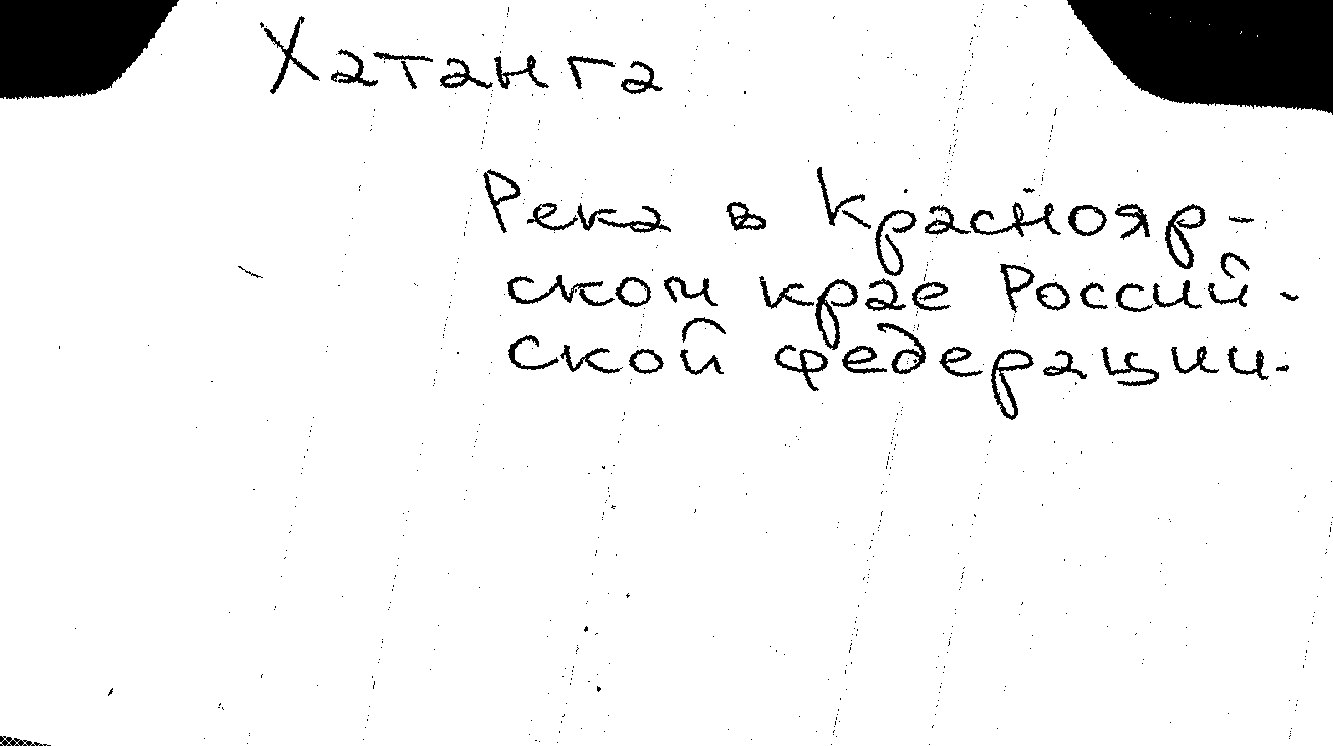 Хатанга
Река в Краснояр-
ском крае Россий-
ской федерации.